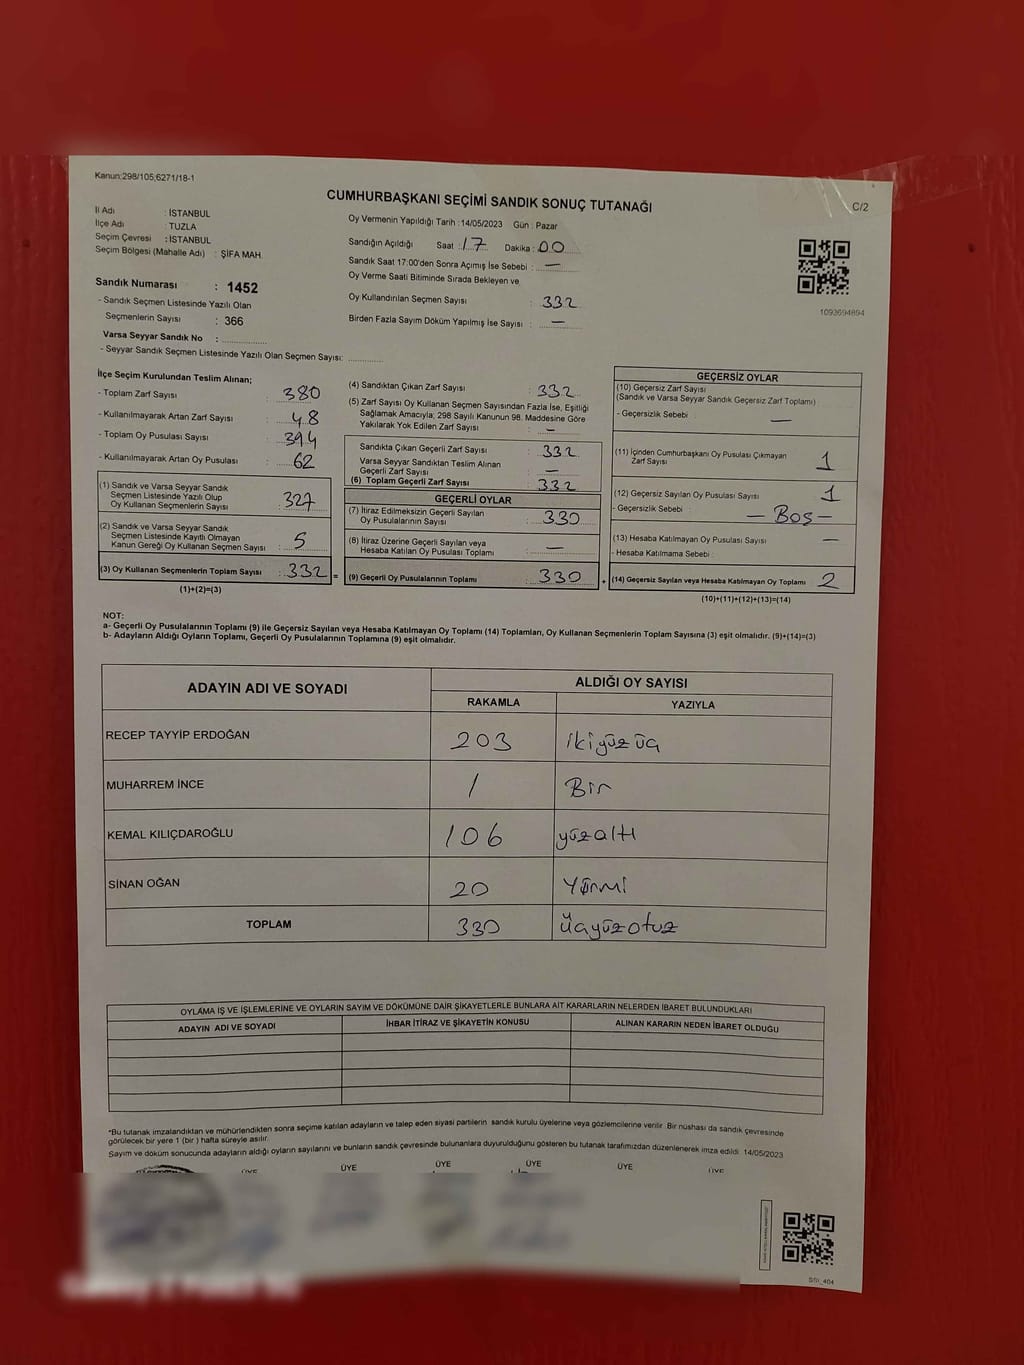 Kanun:298/105,6271/18-1
CUMHURBAŞKANI SEÇİMİ SANDIK SONUÇ TUTANAĞI
C/2
İl Adı : İSTANBUL
İlçe Adı : TUZLA
Seçim Çevresi : İSTANBUL
Seçim Bölgesi (Mahalle Adı) : ŞİFA MAH.
Oy Vermenin Yapıldığı Tarih :14/05/2023 Gün : Pazar
Sandığın Açıldığı Saat : 17 Dakika : 00
Sandık Saat 17:00'den Sonra Açımış İse Sebebi : —
Oy Verme Saati Bitiminde Sırada Bekleyen ve
Oy Kullandırılan Seçmen Sayısı 332
Birden Fazla Sayım Döküm Yapılmış İse Sayısı : —
1093694894
Sandık Numarası : 1452
- Sandık Seçmen Listesinde Yazılı Olan
Seçmenlerin Sayısı : 366
Varsa Seyyar Sandık No :
- Seyyar Sandık Seçmen Listesinde Yazılı Olan Seçmen Sayısı:
İlçe Seçim Kurulundan Teslim Alınan;
- Toplam Zarf Sayısı : 380
- Kullanılmayarak Artan Zarf Sayısı : 48
- Toplam Oy Pusulası Sayısı : 394
- Kullanılmayarak Artan Oy Pusulası : 62
(1) Sandık ve Varsa Seyyar Sandık
Seçmen Listesinde Yazılı Olup
Oy Kullanan Seçmenlerin Sayısı : 327
(2) Sandık ve Varsa Seyyar Sandık
Seçmen Listesinde Kayıtlı Olmayan
Kanun Gereği Oy Kullanan Seçmen Sayısı : 5
(3) Oy Kullanan Seçmenlerin Toplam Sayısı : 332 =
(1)+(2)=(3)
(4) Sandıktan Çıkan Zarf Sayısı : 332
(5) Zarf Sayısı Oy Kullanan Seçmen Sayısından Fazla İse, Eşitliği
Sağlamak Amacıyla; 298 Sayılı Kanunun 98. Maddesine Göre
Yakılarak Yok Edilen Zarf Sayısı : —
Sandıkta Çıkan Geçerli Zarf Sayısı : 332
Varsa Seyyar Sandıktan Teslim Alınan
Geçerli Zarf Sayısı : —
(6) Toplam Geçerli Zarf Sayısı : 332
GEÇERLİ OYLAR
(7) İtiraz Edilmeksizin Geçerli Sayılan
Oy Pusulalarının Sayısı : 330
(8) İtiraz Üzerine Geçerli Sayılan veya
Hesaba Katılan Oy Pusulası Toplamı : —
(9) Geçerli Oy Pusulalarının Toplamı : 330 +
GEÇERSİZ OYLAR
(10) Geçersiz Zarf Sayısı
(Sandık ve Varsa Seyyar Sandık Geçersiz Zarf Toplamı)
- Geçersizlik Sebebi : —
(11) İçinden Cumhurbaşkanı Oy Pusulası Çıkmayan
Zarf Sayısı 1
(12) Geçersiz Sayılan Oy Pusulası Sayısı 1
- Geçersizlik Sebebi : — Boş —
(13) Hesaba Katılmayan Oy Pusulası Sayısı —
- Hesaba Katılmama Sebebi :
(14) Geçersiz Sayılan veya Hesaba Katılmayan Oy Toplamı 2
(10)+(11)+(12)+(13)=(14)
NOT:
a- Geçerli Oy Pusulalarının Toplamı (9) ile Geçersiz Sayılan veya Hesaba Katılmayan Oy Toplamı (14) Toplamları, Oy Kullanan Seçmenlerin Toplam Sayısına (3) eşit olmalıdır. (9)+(14)=(3)
b- Adayların Aldığı Oyların Toplamı, Geçerli Oy Pusulalarının Toplamına (9) eşit olmalıdır.
ADAYIN ADI VE SOYADI ALDIĞI OY SAYISI
RAKAMLA YAZIYLA
RECEP TAYYİP ERDOĞAN 203 ikiyüzüç
MUHARREM İNCE 1 Bir
KEMAL KILIÇDAROĞLU 106 yüzaltı
SİNAN OĞAN 20 Yirmi
TOPLAM 330 üçyüzotuz
OYLAMA İŞ VE İŞLEMLERİNE VE OYLARIN SAYIM VE DÖKÜMÜNE DAİR ŞİKAYETLERLE BUNLARA AİT KARARLARIN NELERDEN İBARET BULUNDUKLARI
ADAYIN ADI VE SOYADI İHBAR İTİRAZ VE ŞİKAYETİN KONUSU ALINAN KARARIN NEDEN İBARET OLDUĞU
*Bu tutanak imzalandıktan ve mühürlendikten sonra seçime katılan adayların ve talep eden siyasi partilerin sandık kurulu üyelerine veya gözlemcilerine verilir. Bir nüshası da sandık çevresinde
görülecek bir yere 1 (bir ) hafta süreyle asılır.
Sayım ve döküm sonucunda adayların aldığı oyların sayılarını ve bunların sandık çevresinde bulunanlara duyurulduğunu gösteren bu tutanak tarafımızdan düzenlenerek imza edildi. 14/05/2023
ÜYE ÜYE ÜYE ÜYE ÜYE ÜYE
SSI_404